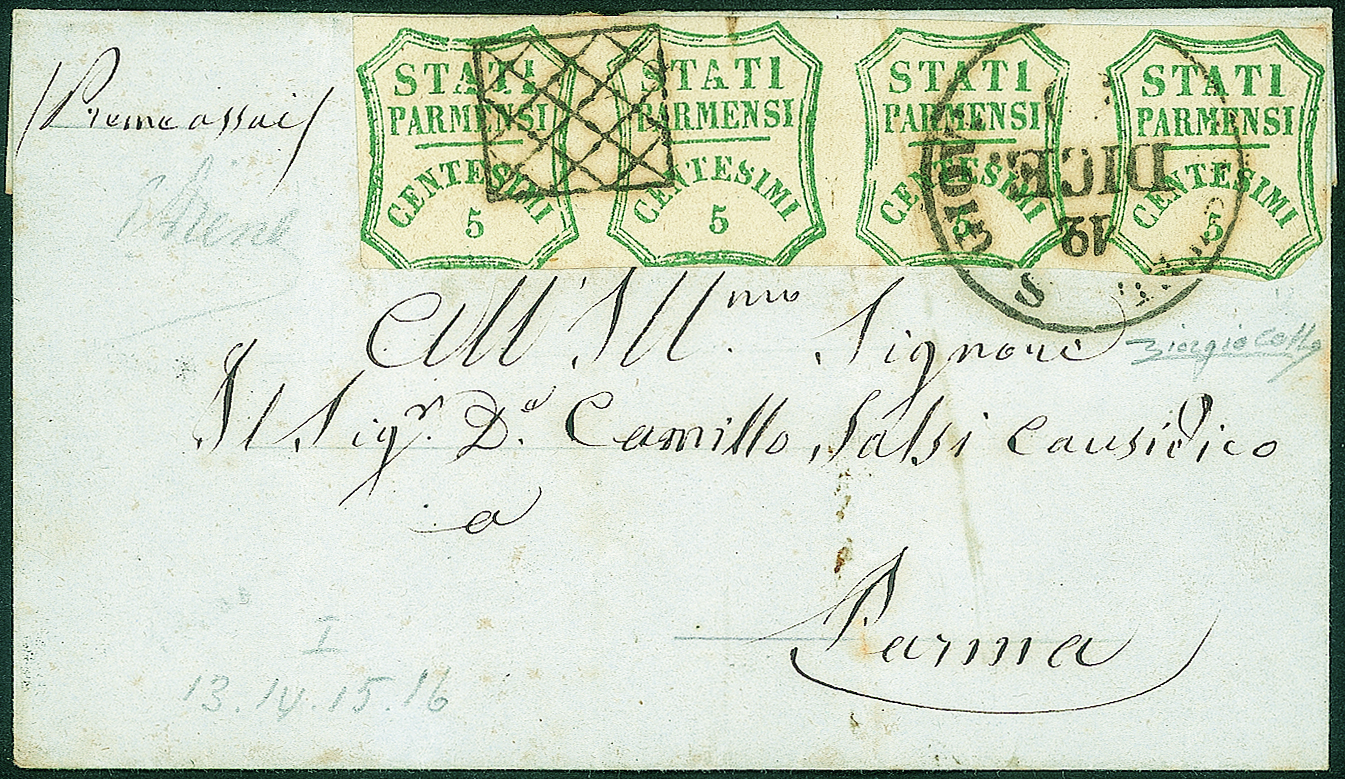 STATI STATI STATI STATI
PARMENSI PARMENSI PARMENSI PARMENSI
CENTESIMI CENTESIMI CENTESIMI CENTESIMI
5 5 5 5
DICE
19
/Preme assai/
All'Ill.mo Signore
Il Sig.r D.r Camillo Salsi Causidico
a
Parma
I
13.14.15.16